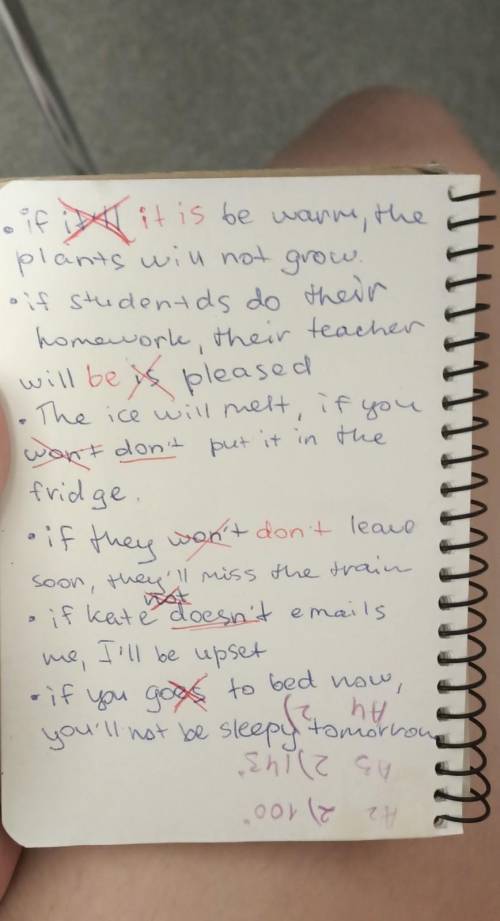 • if it'll it is be warm, the
plants will not grow.
• if studentds do their
homework, their teacher
will be is pleased
• The ice will melt, if you
won't don't put it in the
fridge.
• if they won't don't leave
soon, they'll miss the train
not
• if kate doesn't emails
me, I'll be upset
• if you goes to bed now,
you'll not be sleepy tomorrow
A4 2)
A3 2) 143°
A2 2) 100°